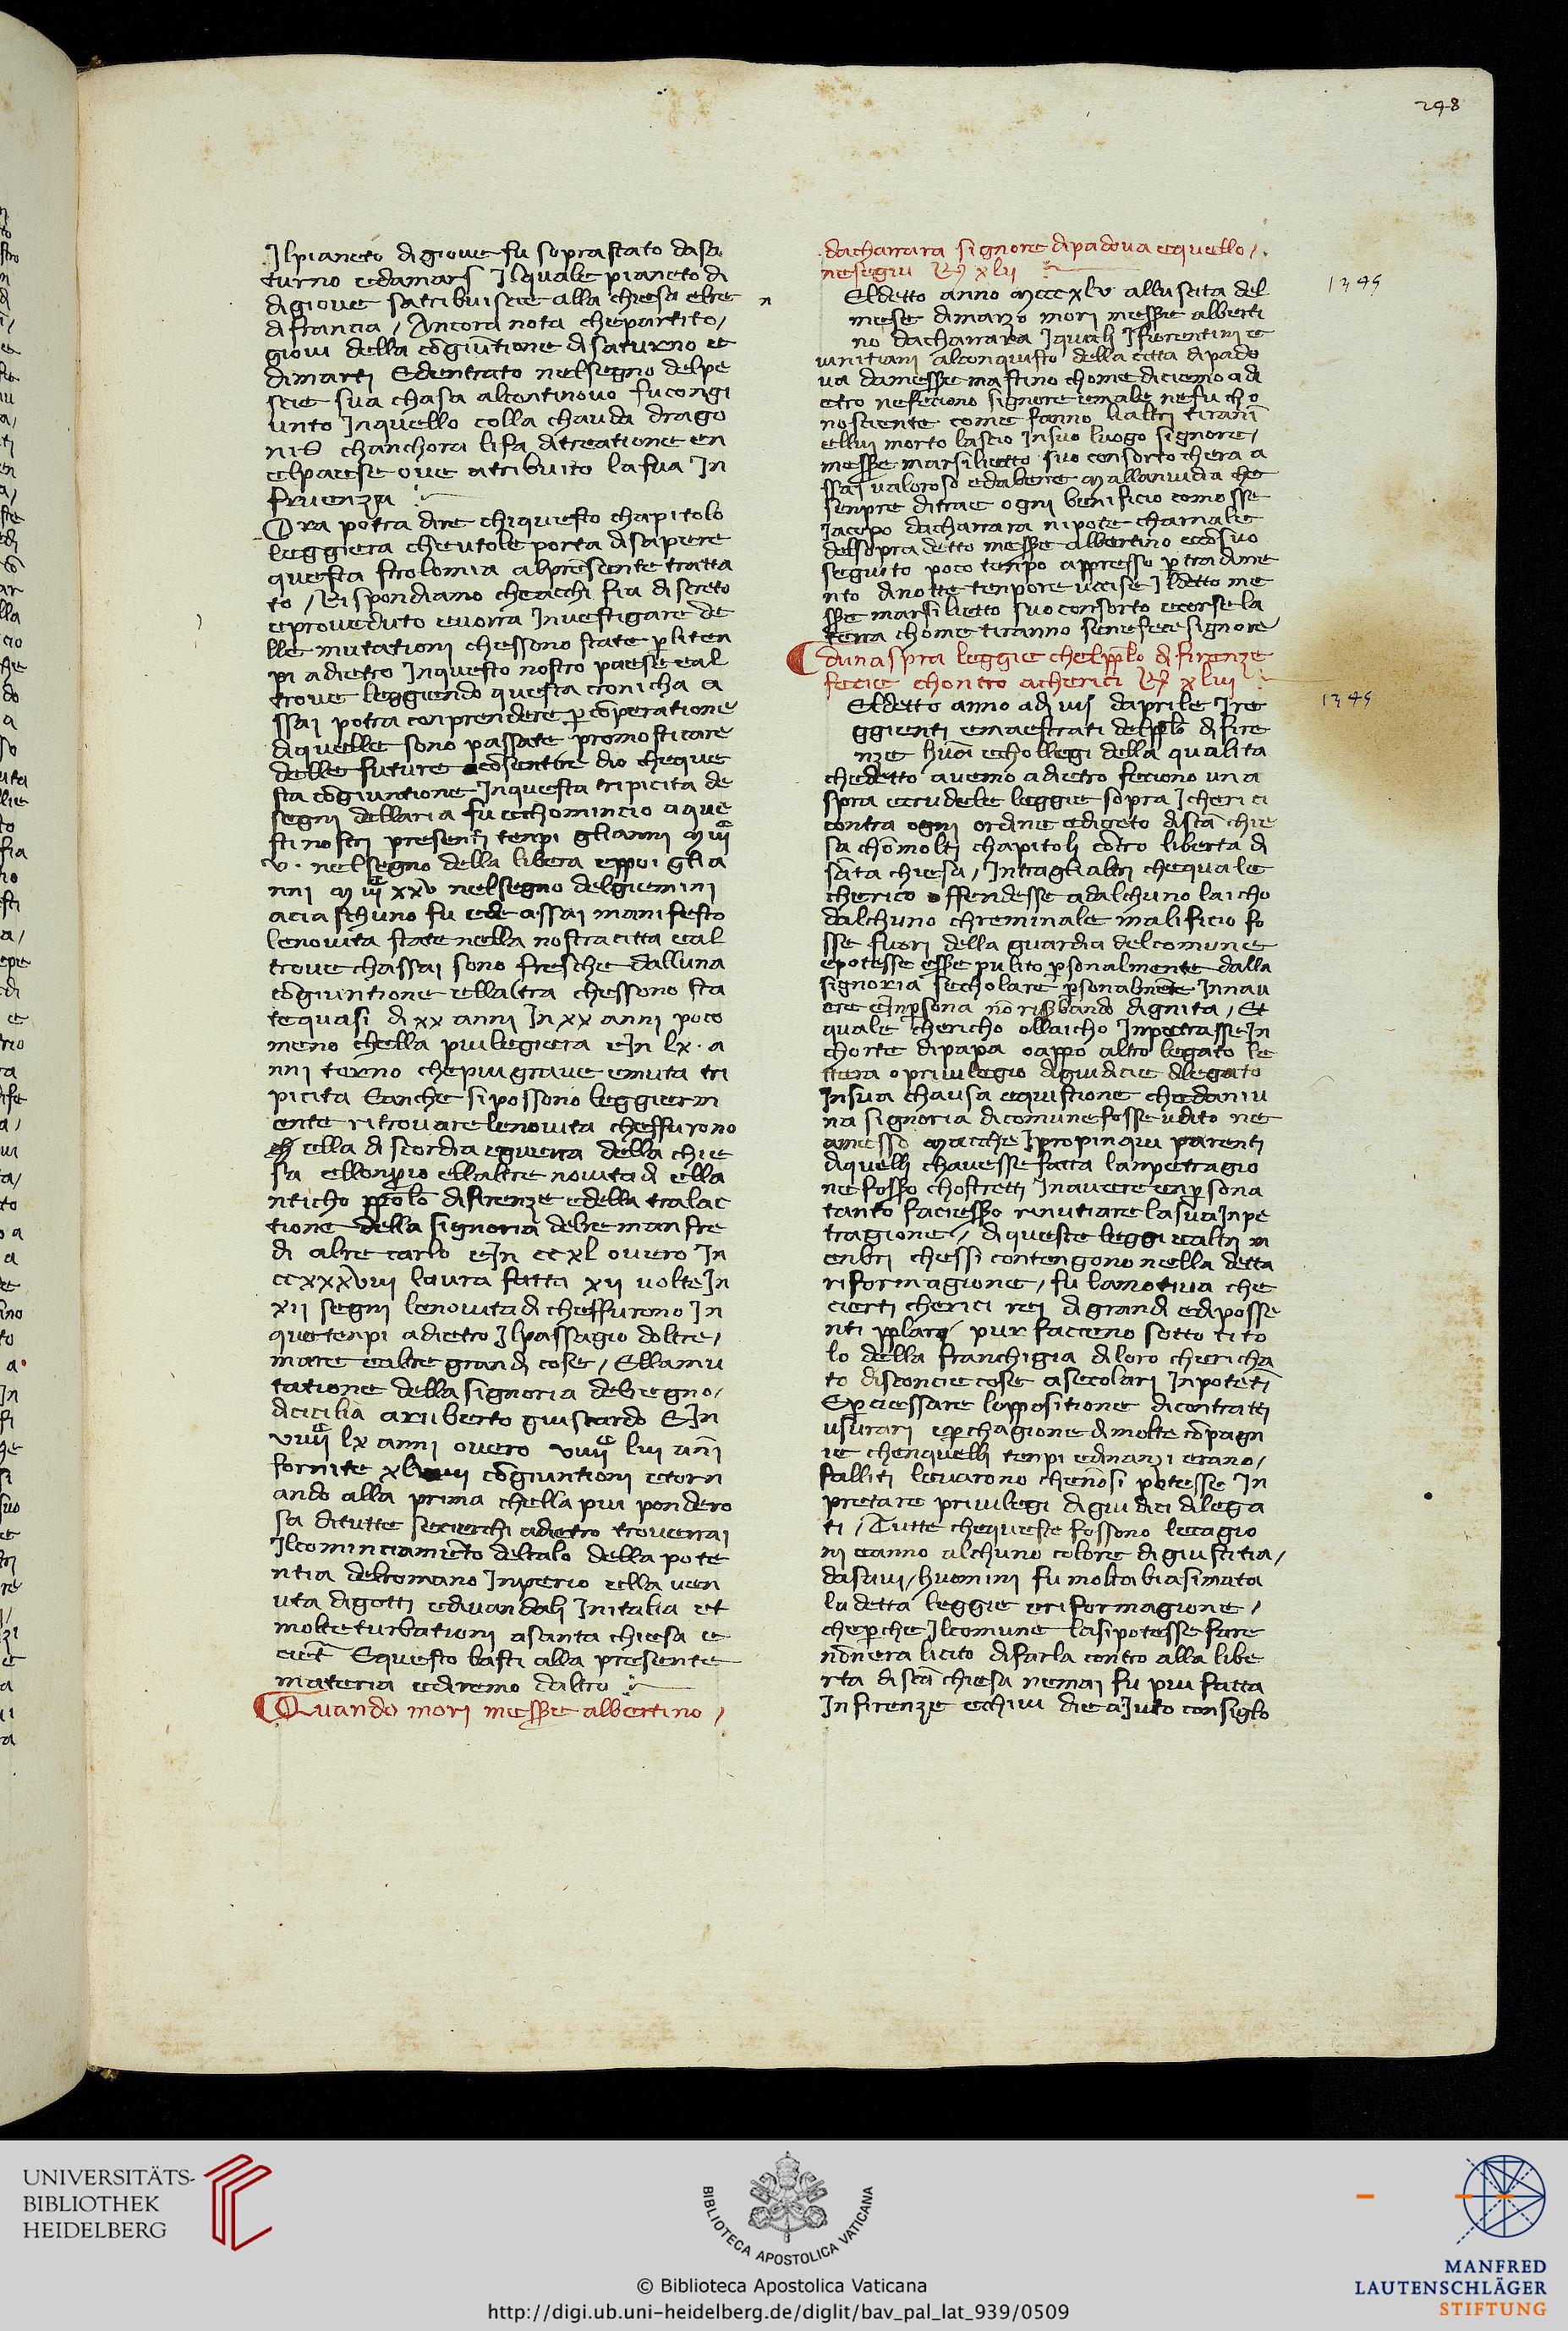 298
Jlpianeto di gioue fu soprastato dasa
turno edamars Jlquale pianeto di
digioue satribuiscie alla chiesa elre
di francia / Ancora nota chepartito /
gioui della cōgiūtione di saturno et
dimarti Edentrato nelsegno delpe
scie sua chasa alcontinouo fu congi
unto Jnquello colla chauda drago
nis chanchora lifa ditreatione en
elpaese oue atribuito lasua Jn
fruenza
Ora potra dire chiquesto chapitolo
leggiera cheutole porta di sapere
questa strolomia alpresente tratta
to / Rispondiamo cheacchi fia discreto
eproueduto euorra Jnuestigare de
lle mutationi chessono state p̲ liten
pi adietro Jnquesto nostro paese eal
troue leggiendo questa cronicha a
ssai potra conprendere p̲ cōperatione
diquelle sono passate pronosticare
delle future cōsentēte dio cheque
sta cōgiuntione Jnquesta tripicita de
segni dellaria fu echomincio aque
sti nostri presenti tenpi glianni M iii͡c
v · nelsegno della libera eppoi glia
nni M iii͡c xxv nelsegno delgiemini
aciaschuno fu ede assai manifesto
lenouita state nella nostra citta eal
troue chassai sono fresche dalluna
cōgiuntione ellaltra chessono sta
te quasi di xx anni Jn xx anni poco
meno chella piu legiera eJn lx · a
nni torno chepiu graue emuta tri
picita Eanche sipossono leggierm
ente ritrouare lenouita cheffurono
ella discordia eguerra della chie
sa ellonp̲io ellaltre nouita di ella
nticho pp̄olo difirenze edella tralac
tione della signoria delre manfre
di alre carlo eJn cc xl ouero Jn
ccxxxviii laura fatta xii uolte Jn
xii segni lenouita di cheffurono Jn
que tenpi adietro Jlpassagio doltre /
mare ealtre grandi cose / Ellamu
tatione della signoria delregno /
dicicilia aruberto guiscardo EJn
viiii͡c lx anni ouero viiii͡c lui anī
fornite xlviii cōgiuntioni etorn
ando alla prima chella piu pondero
sa ditutte secierchi adietro trouerrai
Jlcominciamēto delcalo della pote
ntia delromano Jnperio ella uen
uta digotti edi uandali Jnitalia et
molte turbationi asanta chiesa e
ciet̄ Equesto basti alla presente
materia ediremo daltro
Quando mori messere albertino /
dacharrara signore dipadoua equello /
nesegui R̄ xlii
Eldetto anno mcccxlv alluscita del
mese dimarzo mori messere alberti
no dacharrara Jquali Jfiorentini e
uinitiani alconquisto della citta dipado
ua damessere mastino chome diciemo adi
etro nefeciono signore emale nefu cho
nosciente come fanno lialtri tiranī
ellui morto lascio Jnsuo luogo signore /
messere marsilietto suo consorto chera a
ssai ualoroso edabene Mallanuidia che
senpre ditrae ogni benificio comosse
Jacopo dacharrara nipote charnale
delsopra detto messere albertino ecōsuo
seguito poco tenpo appresso p̲ tradime
nto dinotte tenpore uccise Jldetto me
ssere marsilietto suo consorto ecorse la
terra chome tiranno senefece signore
duna spra leggie chelpp̄lo di firenze
fecie chontro acherici R̄ xliii
Eldetto anno adi iiij daprile Jre
ggienti emaestrati delpp̄lo di fire
nze huoī echollegi della qualita
chedetto auemo adietro feciono una
spra ecrudele leggie sopra Jcherici
contra ogni ordine edicreto di sc̄a chie
sa chō molti chapitoli cōtro liberta di
sāta chiesa / Jntragli altri chequale
cherico offendesse adalchuno laicho
dalchuno chreminale malificio fo
sse fuori della guardia delcomune
epotesse essere pulito p̲sonalmente dalla
signoria secholare p̲sonalmēte Jnnau
ere eJnp̲sona nō riserbando dignita / Et
quale chericho ollaicho Jnpetrasse Jn
chorte dipapa oappo altro legato le
ttera o priuilegio digiudicie dilegato
Jnsua chausa equistione chedaniu
na signoria dicomune fosse udito ne
amesso Macche Jpropinqui parenti
diquelli chauesse fatta lanpetragio
ne fosso chostretti Jnauere enp̲sona
tanto faciesso rinutiare lasua Jnpe
tragione / diqueste leggi ealtri m
enbri chessi contengono nella detta
riformagione / fu lamotiua che
cierti cherici rei digrandi ediposse
nti pplari pur facieno sotto tito
lo della franchigia diloro chericha
to disconcie cose asecolari Jnpotētī
Ep̲ ciessare loppositione dicontratti
usurari ep̲ chagione dimolte cōpagn
ie chenquelli tenpi edinanzi erano /
falliti leuarono chenōsi potesse Jn
pretare priuilegi digiudici dilega
ti / Tutte chequeste fossono lecagio
ni eanno alchuno colore digiustitia /
dasaui / huomini fu molta biasimata
la detta leggie eriformagione /
chep̲che Jlcomune lasipotesse fare
nonera licito difarla contro alla libe
rta disc̄a chiesa nemai fu piu fatta
Jnfirenze echiui die aiuto consiglo
1345
1345
UNIVERSITÄTS-
BIBLIOTHEK
HEIDELBERG
BIBLIOTECA APOSTOLICA VATICANA
© Biblioteca Apostolica Vaticana
http://digi.ub.uni-heidelberg.de/diglit/bav_pal_lat_939/0509
MANFRED
LAUTENSCHLÄGER
STIFTUNG